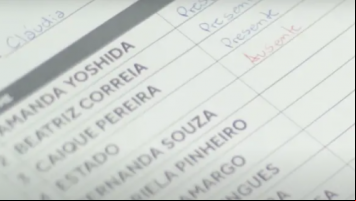 Claudia
AMANDA YOSHIDA Present
2 BEATRIZ CORREIA Presente
3 CAIQUE PEREIRA Ausente
4 ESTADO
FERNANDA SOUZA
PINHEIRO
CAMARGO